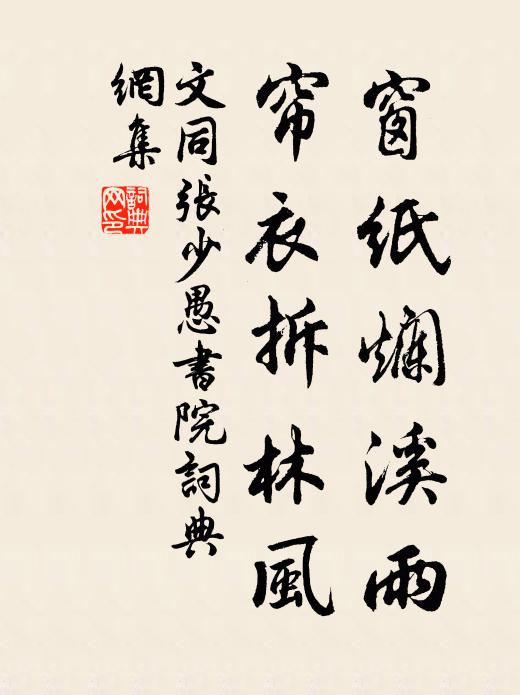 窗紙爛溪雨
帘衣拆林風
文同張少愚書院詞典
網集
詞典網印